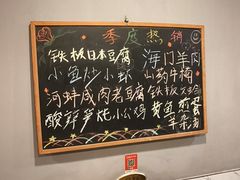 季度热销
铁板日本豆腐 海门羊肉
小鱼炒小虾 山药牛腩
河蚌咸肉老豆腐 铁板
酸辣笋炖小公鸡 黄鱼
羊杂